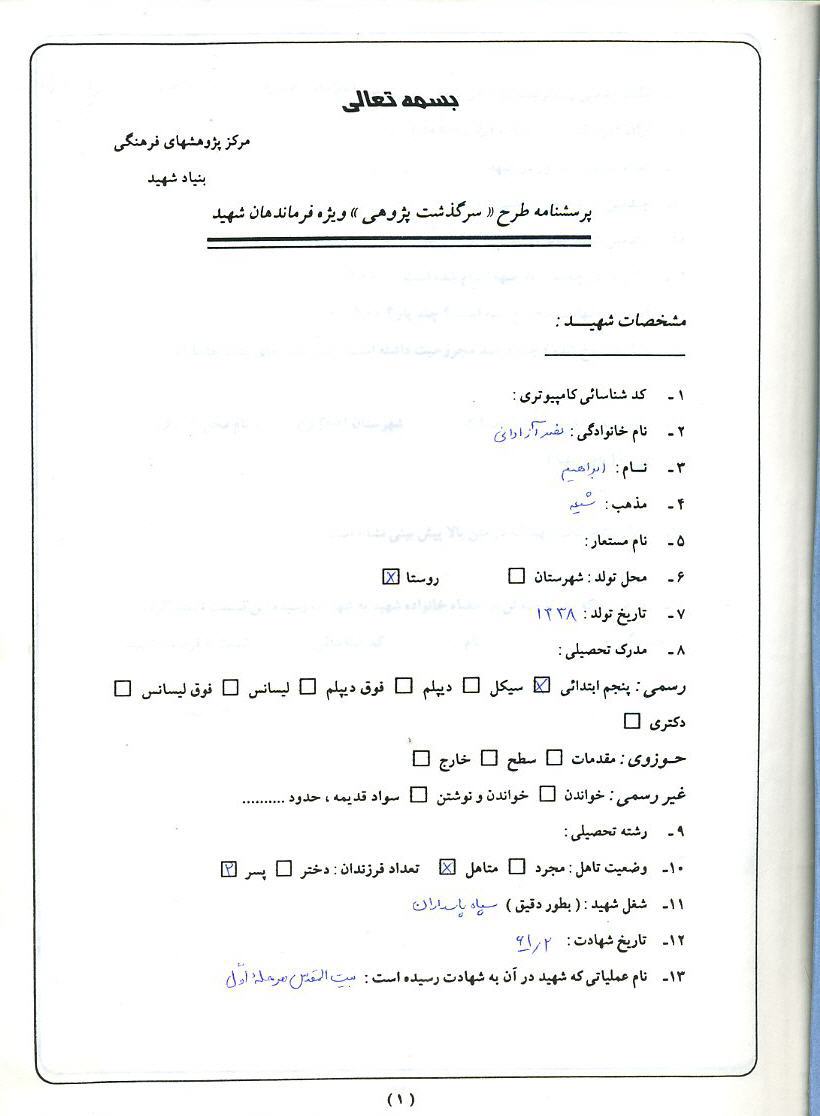 بسمه تعالی
مرکز پژوهشهای فرهنگی
بنیاد شهید
پرسشنامه طرح « سرگذشت پژوهی » ویژه فرماندهان شهید
مشخصات شهیـــد :
۱ـ کد شناسائی کامپیوتری :
۲ـ نام خانوادگی : نصر آزادانی
۳ـ نــام : ابراهیم
۴ـ مذهب : شیعه
۵ـ نام مستعار :
۶ـ محل تولد : شهرستان □ روستا ☒
۷ـ تاریخ تولد : ۱۳۳۸
۸ـ مدرک تحصیلی :
رسمی : پنجم ابتدائی ☒ سیکل □ دیپلم □ فوق دیپلم □ لیسانس □ فوق لیسانس □
دکتری □
حـوزوی : مقدمات □ سطح □ خارج □
غیر رسمی : خواندن □ خواندن و نوشتن □ سواد قدیمه ، حدود ..........
۹ـ رشته تحصیلی :
۱۰ـ وضعیت تاهل : مجرد □ متاهل ☒ تعداد فرزندان : دختر □ پسر ۲
۱۱ـ شغل شهید : ( بطور دقیق ) سپاه پاسداران
۱۲ـ تاریخ شهادت : ۶۱/۲
۱۳ـ نام عملیاتی که شهید در آن به شهادت رسیده است : بیت المقدس مرحلهٔ اوّل
( ۱ )